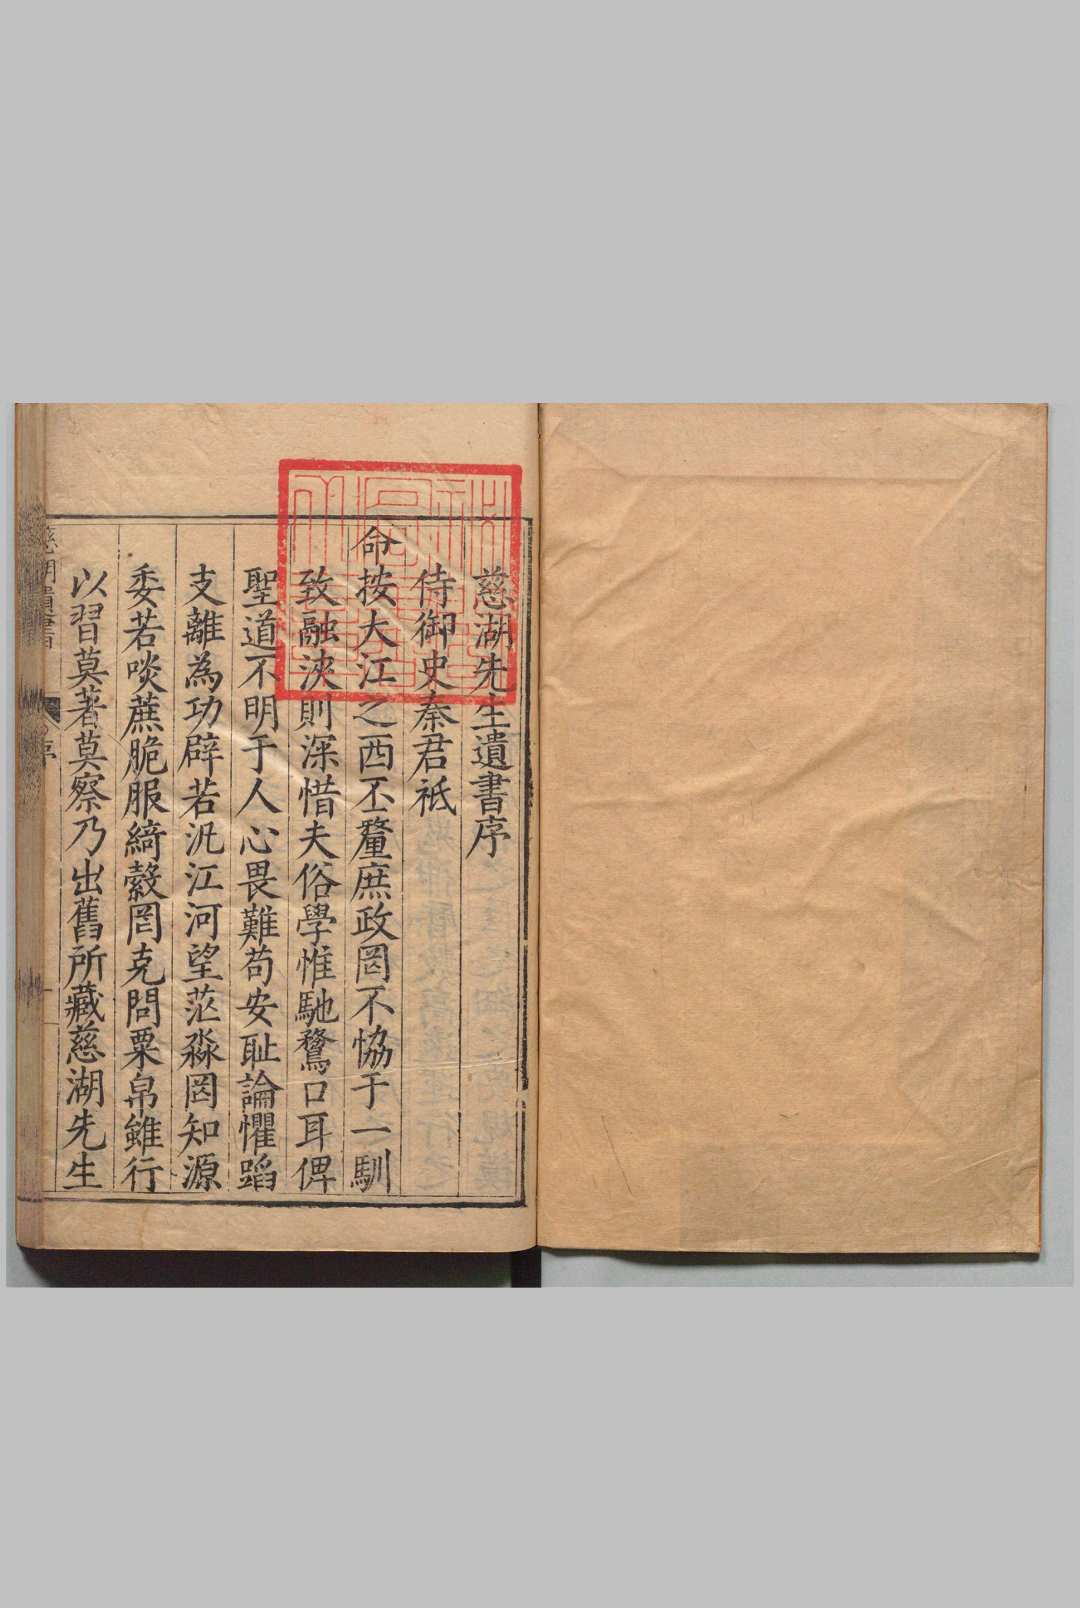 慈湖先生遺書序
侍御史秦君祗
命按大江之西丕釐庶政罔不恊于一馴
致融浹則深惜夫俗學惟馳騖口耳俾
聖道不明于人心畏難苟安耻論懼蹈
支離為功辟若汎江河望茫淼罔知源
委若啖蔗脆服綺縠罔克問粟帛雖行
以習莫著莫察乃出舊所藏慈湖先生
慈湖遺書
序